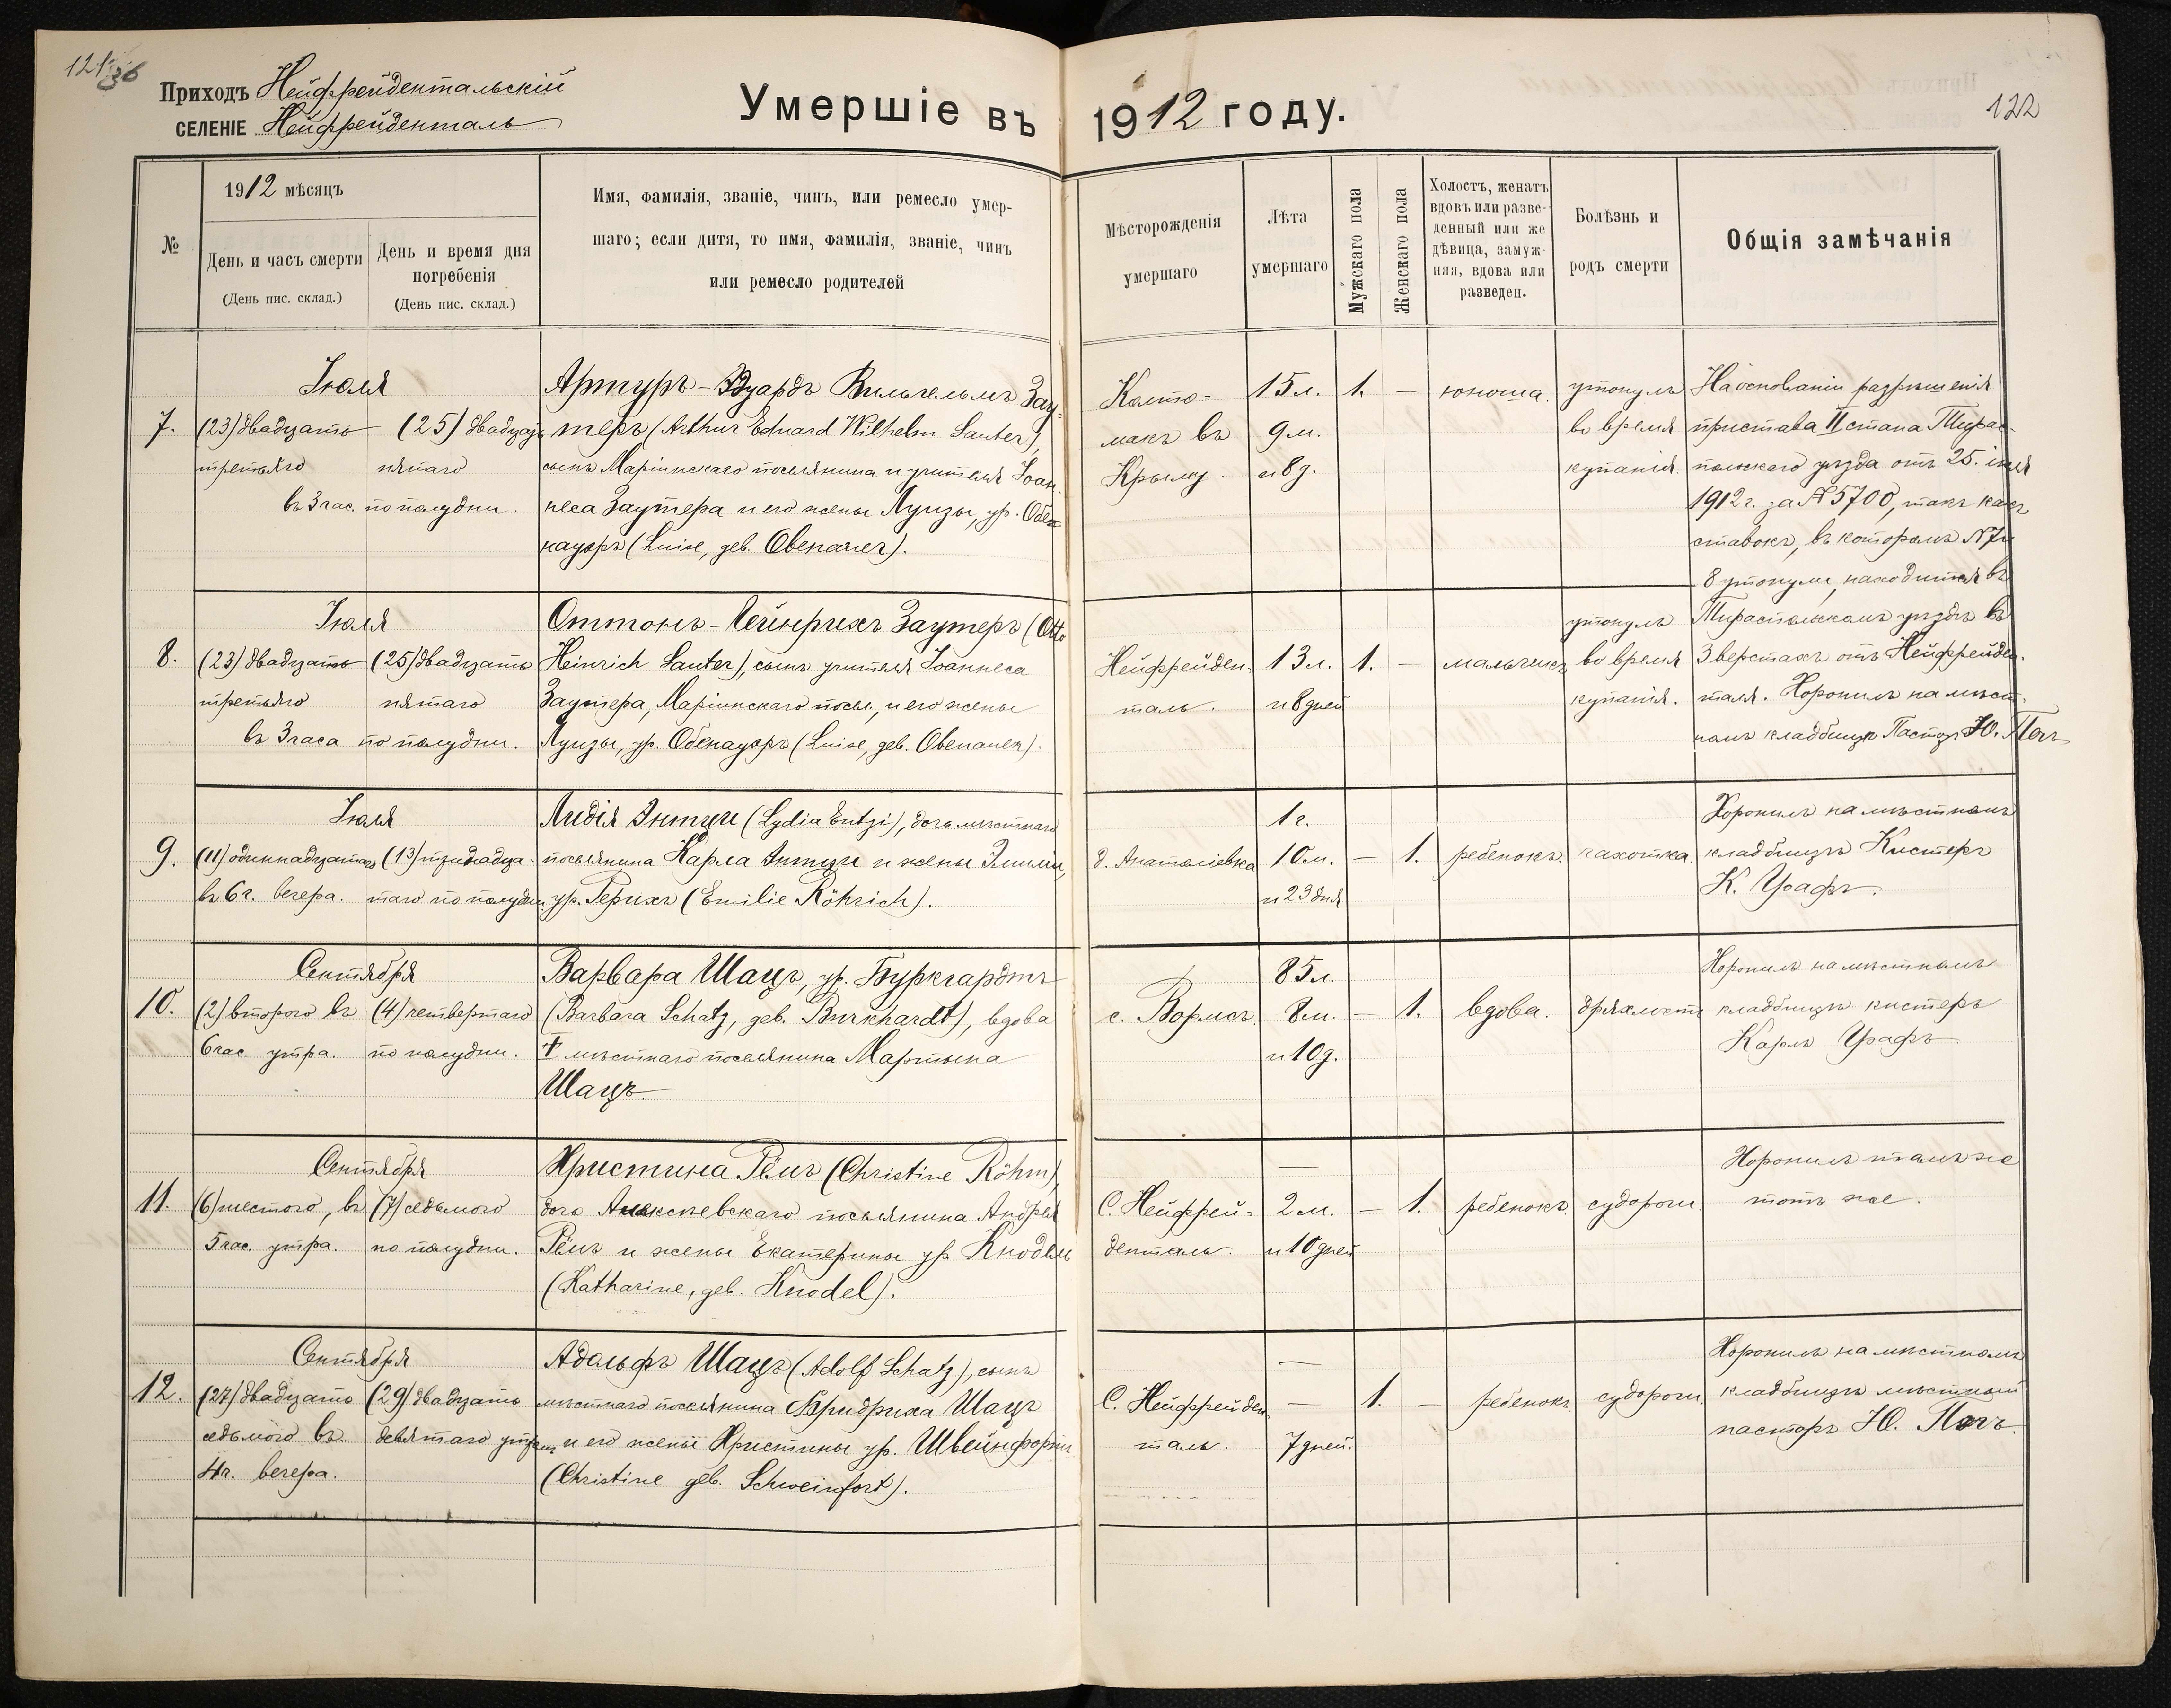 121
36
Приходъ Нейфрейдентальскій
СЕЛЕНІЕ Нейфрейденталь
Умершіе въ 1912 году.
122
№
1912 мѣсяцъ
День и часъ смерти
(День пис. склад.)
День и время дня
погребенія
(День пис. склад.)
Имя, фамилія, званіе, чинъ, или ремесло умер-
шаго; если дитя, то имя, фамилія, званіе, чинъ
или ремесло родителей
Мѣсторожденія
умершаго
Лѣта
умершаго
Мужскаго пола
Женскаго пола
Холостъ, женатъ
вдовъ или разве-
денный или же
дѣвица, замуж-
няя, вдова или
разведен.
Болѣзнь и
родъ смерти
Общія замѣчанія
7.
Іюля
(23) двадцать
третьяго
въ 3 час.
(25) двадцать
пятаго
по полудни.
Артуръ-Эдуардъ Вильгельмъ Зау-
теръ (Arthur Eduard Wilhelm Sauter),
сынъ Маріинскаго поселянина и учителя Іоан-
неса Заутера и его жены Луизы, ур. Обен-
науеръ (Luise, geb. Obenauer).
Колто-
макъ въ
Крыму.
15 л.
9 м.
и 8 д.
1.
—
юноша.
утонулъ
во время
купанія.
На основаніи разрѣшенія
пристава II стана Тирас-
польскаго уѣзда отъ 25. іюля
1912 г. за № 5700, такъ какъ
ставокъ, въ которомъ № 7 и
8 утонули, находится въ
Тираспольскомъ уѣздѣ въ
3 верстахъ отъ Нейфрейден-
таля. Хоронилъ на мѣст-
номъ кладбищѣ Пасторъ Ю. Печъ
8.
Іюля
(23) двадцать
третьяго
въ 3 часа
(25) двадцать
пятаго
по полудни.
Оттонъ-Гейнрихъ Заутеръ (Otto
Heinrich Sauter), сынъ учителя Іоаннеса
Заутера, Маріинскаго посел., и его жены
Луизы, ур. Обенауеръ (Luise, geb. Obenauer).
Нейфрейден-
таль.
13 л.
и 8 дней
1.
—
мальчикъ
утонулъ
во время
купанія.
9.
Іюля
(11) одиннадцатаго
въ 6 ч. вечера.
(13) тринадца-
таго по полудни
Лидія Энтци (Lydia Entzi), дочь мѣстнаго
поселянина Карла Энтци и жены Эмиліи,
ур. Герихъ (Emilie Röhrich).
д. Анатоліевка
1 г.
10 м.
и 23 дня
—
1.
ребенокъ.
чахотка.
Хоронилъ на мѣстномъ
кладбищѣ Кистеръ
К. Графъ.
10.
Сентября
(2) второго въ
6 час. утра.
(4) четвертаго
по полудни.
Варвара Шацъ, ур. Буркгардтъ
(Barbara Schatz, geb. Burkhardt), вдова
† мѣстнаго поселянина Мартына
Шацъ.
с. Вормсъ.
85 л.
8 м.
и 10 д.
—
1.
вдова.
дряхлость
Хоронилъ на мѣстномъ
кладбищѣ кистеръ
Карлъ Графъ
11.
Сентября
(6) шестого, въ
5 час. утра.
(7) седьмого
по полудни.
Христина Рёмъ (Christine Röhm),
дочь Алексѣевскаго поселянина Андрея
Рёмъ и жены Екатерины ур. Кнодель
(Katharine, geb. Knodel).
С. Нейфрей-
денталь.
—
2 м.
и 10 дней
—
1.
ребенокъ.
судороги.
Хоронилъ тамъ же
тотъ же.
12.
Сентября
(27) двадцать
седьмого въ
4 ч. вечера.
(29) двадцать
девятаго утромъ
Адольфъ Шацъ (Adolf Schatz), сынъ
мѣстнаго поселянина Фридриха Шацъ
и его жены Христины ур. Швейнфортъ
(Christine geb. Schweinfort).
С. Нейфрейден-
таль.
—
—
7 дней.
1.
—
ребенокъ.
судороги.
Хоронилъ на мѣстномъ
кладбищѣ мѣстный
пасторъ Ю. Печъ.